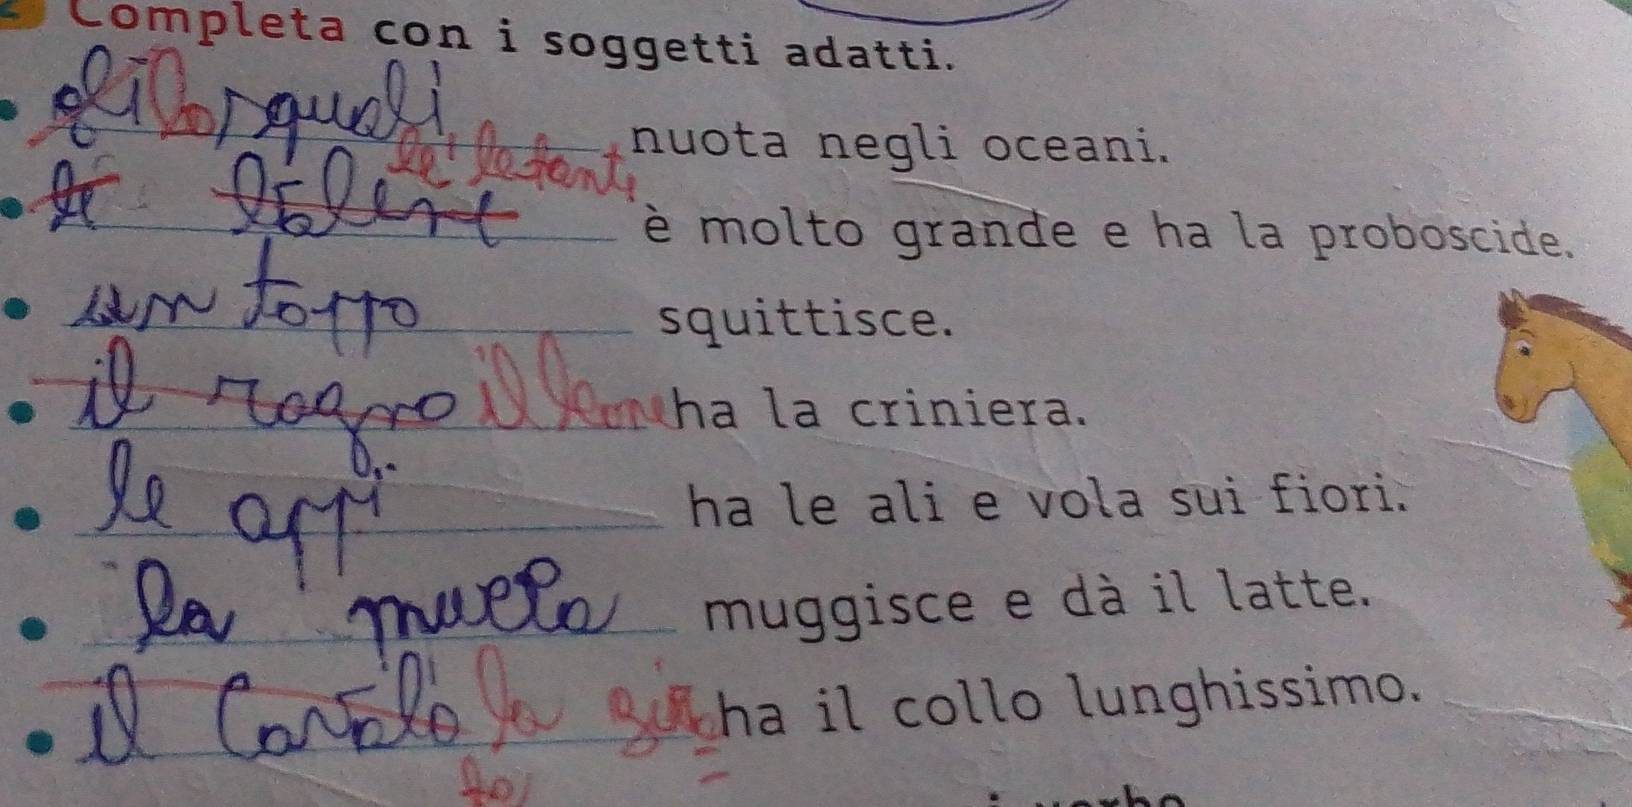 Completa con i soggetti adatti.
gli squali nuota negli oceani.
le è molto grande e ha la proboscide.
un toppo squittisce.
il ragno il leone ha la criniera.
le appi ha le ali e vola sui fiori.
la muela muggisce e dà il latte.
il cavalo la ha il collo lunghissimo.